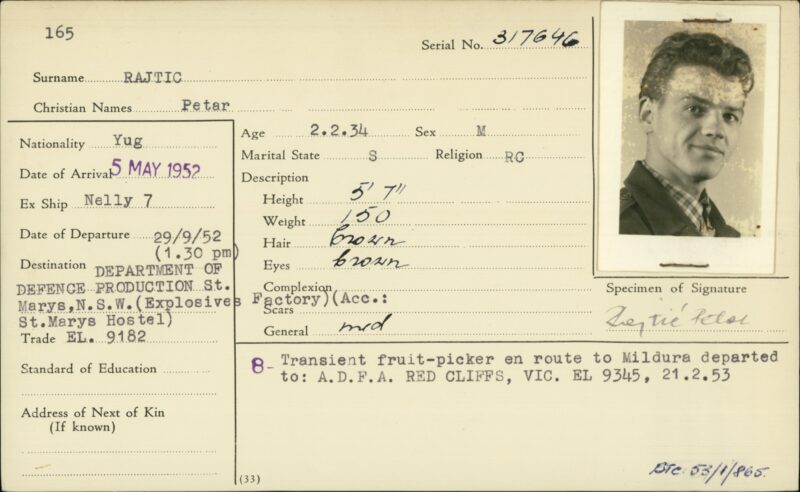 165
Serial No. 317646
Surname RAJTIC
Christian Names Petar
Nationality Yug
Date of Arrival 5 MAY 1952
Ex Ship Nelly 7
Date of Departure 29/9/52
(1.30 pm)
Destination DEPARTMENT OF
DEFENCE PRODUCTION St.
Marys,N.S.W.(Explosives Factory)(Acc.:
St.Marys Hostel)
Trade EL. 9182
Standard of Education
Address of Next of Kin
(If known)
Age 2.2.34 Sex M
Marital State S Religion RC
Description
Height 5' 7"
Weight 150
Hair brown
Eyes brown
Complexion
Scars
General med
Specimen of Signature
Rajtić Petar
8- Transient fruit-picker en route to Mildura departed
to: A.D.F.A. RED CLIFFS, VIC. EL 9345, 21.2.53
(33)
53/1/865.